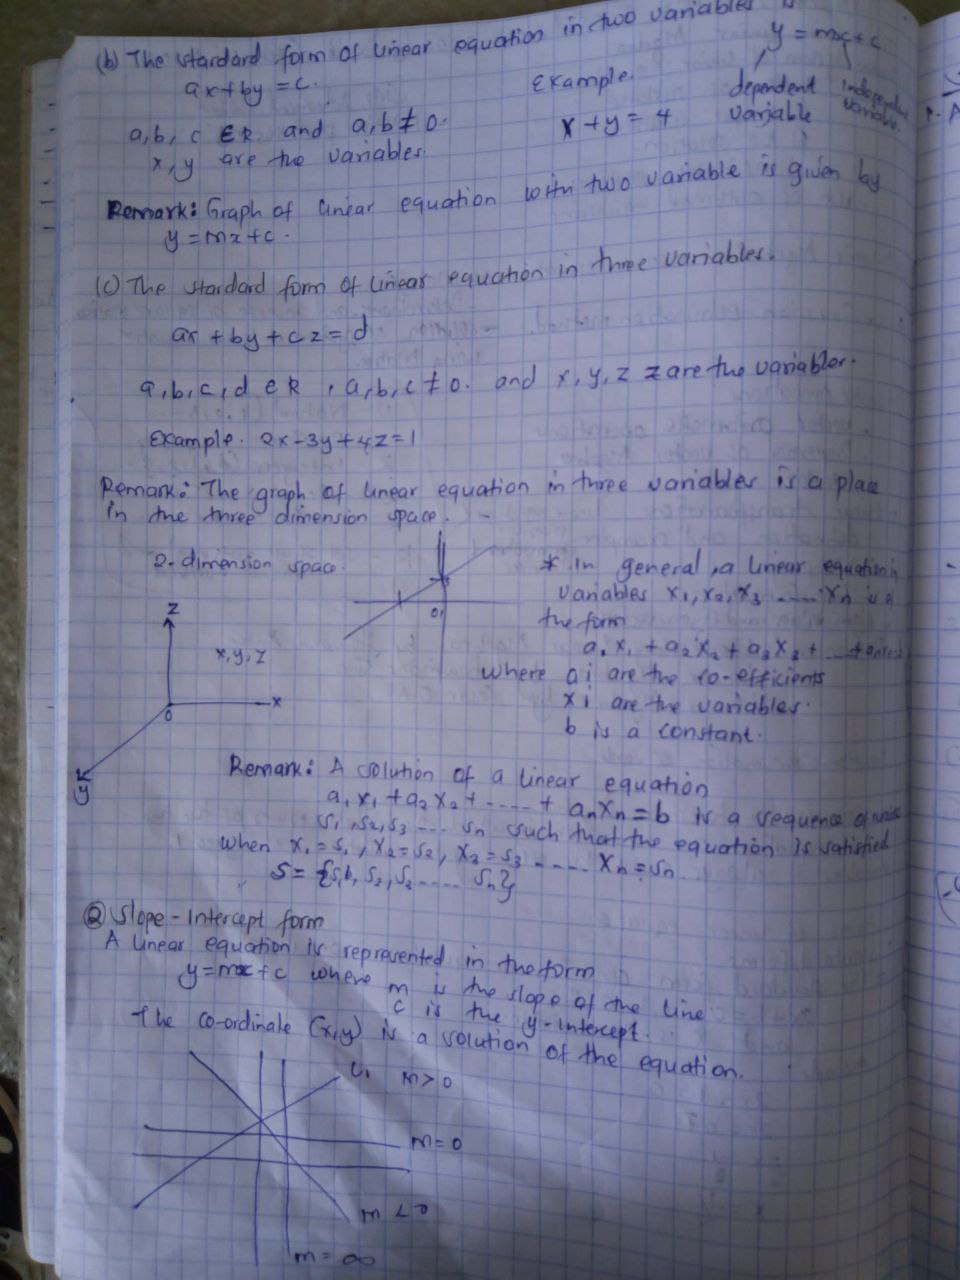 (b) The standard form of linear equation in two variables is
ax+by = c.
Example.
y = mx+c
dependent variable
independent variable
a, b, c ∈R and a,b ≠ 0.
x + y = 4
x, y are the variables.
Remark: Graph of linear equation with two variable is given by
y = mx + c.
(c) The standard form of linear equation in three variables.
ax + by + cz = d
a, b, c, d ∈ R , a, b, c ≠ 0. and x, y, z z are the variables.
Example. 2x - 3y + 4z = 1
Remark: The graph of linear equation in three variables is a place
in the three dimension space.
2-dimension space.
0
z
x, y, z
0
x
y
* In general, a linear equation in
variables x₁, x₂, x₃ ...... xn is a
the form
a₁x₁ + a₂x₂ + a₃x₃ + ....
where ai are the co-efficients
xi are the variables.
b is a constant.
Remark: A solution of a linear equation
a₁x₁ + a₂x₂ + ..... + anxn = b is a sequence of
s₁, s₂, s₃ ... sn such that the equation is satisfied
when x₁ = s₁, x₂ = s₂, x₃ = s₃ ...... xn = sn.
② Slope-Intercept form
A linear equation is represented in the form
y = mx + c where m is the slope of the line
c is the y-intercept.
The co-ordinate (x,y) is a solution of the equation.
L₁
m > 0
m = 0
m < 0
m = ∞